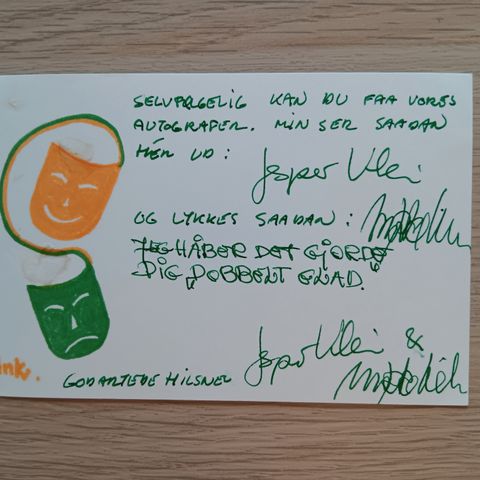 SELVFØLGELIG KAN DU FAA VORES
AUTOGRAFER. MIN SER SAADAN
HER UD: Jesper Klein
OG LYKKES SAADAN:
JEG HÅBER DET GJORDE
DIG „DOBBELT GLAD.
Jesper Klein &
GODARTEDE HILSNER